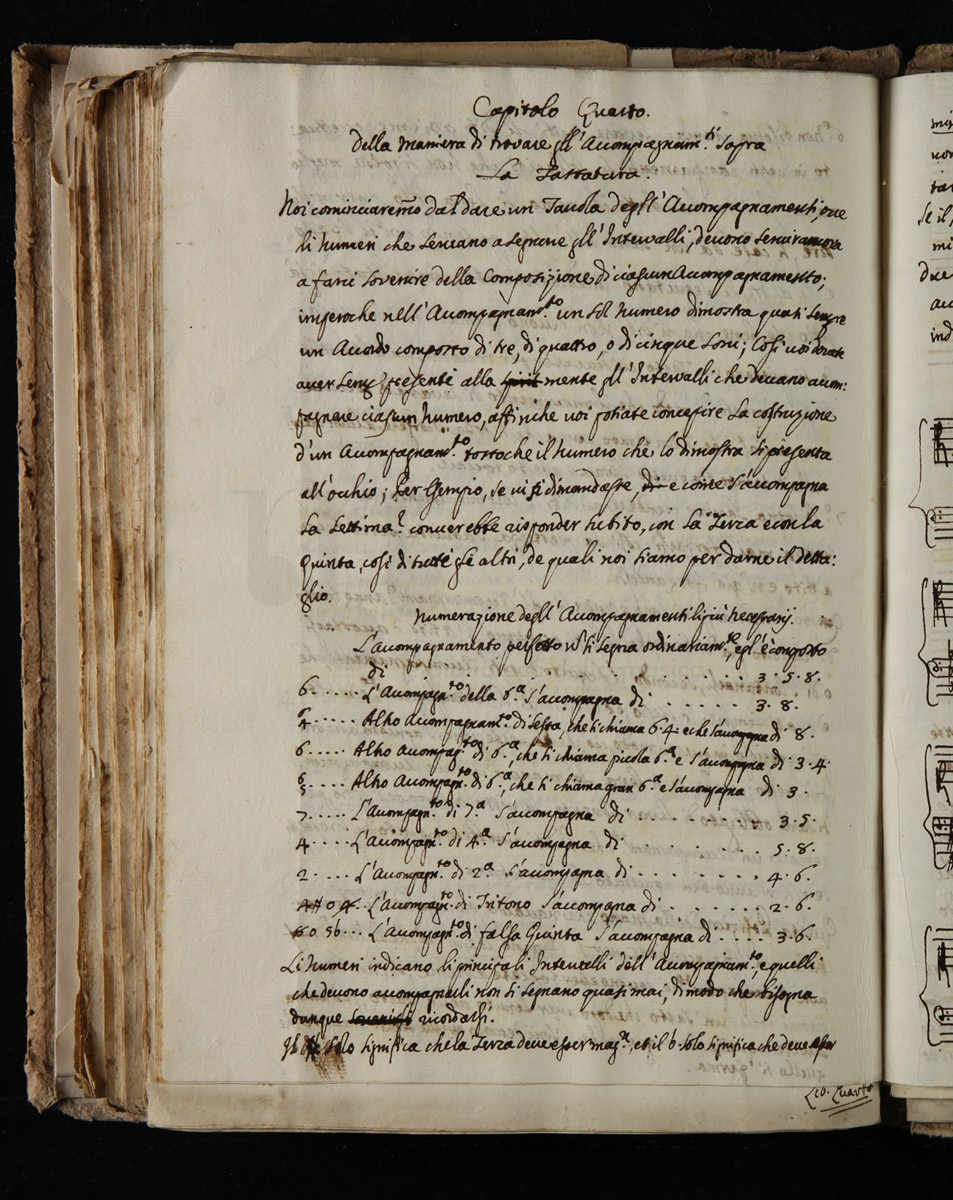 Capitolo Quarto.
Della Maniera di trovare gl'Accompagnam.ti Sopra
La Tastatura.
Noi cominciaremo dal dare un Tavola degl'Accompagnamenti, ove
li numeri che servano a segnare gl'Intervalli, devono servir ancora
a farci sovenire della Composizione di ciascun Accompagnamento;
imperoche nell'Accompagnam.to un sol numero dimostra quasi sempre
un Acordo composto di tre, di quattro, o di cinque soni; Cosi voi dovete
aver semp. presente alla mente gl'Intervalli che devano accom:
pagnare ciascun numero, affinche voi potiate concepire La costruzione
d'un Accompagnam.to tosto che il numero che lo dimostra si presenta
all'occhio; Per Esempio, se vi si dimandasse, e come s'accompagna
La Settima? converebbe risponder subito, con La Terza e con la
Quinta, così di tutte gle altri, de quali noi siamo per darne il detta:
glio.
Numerazione degl'Accompagnamenti li più necessarij.
L'accompagnamento perfetto si segna ordinariam.te, egl'è composto
di . . . . . . . . 3. 5. 8.
6 ..... L'Accompagn.to della 6.a s'accompagna di ..... 3. 8.
6/4 ..... Altro Accompagnam.to di Sesta, che si chiama 6. 4. e che s'accompagna di 8.
6 ..... Altro Accompag.to di 6.a, che si chiama picola 6.a e s'accompagna di 3. 4.
6/5 ..... Altro Accompagn.to di 6.a, che si chiama gran 6.a e s'accompagna di 3.
7 ..... L'Accompagn.to di 7.a s'accompagna di ........ 3. 5.
4 ..... L'Accompagn.to di 4.a s'accompagna di ....... 5. 8.
2 ..... L'Accompagn.to di 2.a s'accompagna di ....... 4. 6.
4# o 4. L'Accompagn.to di Tritono s'accompagna di ...... 2. 6.
o 5b... L'Accompagn.to di falsa Quinta s'accompagna di .... 3. 6.
Li numeri indicano li principali Intervalli dell'Accompagnam.to, e quelli
che devono accompagnarli non si segnano quasi mai, di modo che bisogna
dunque ricordarsi.
Il # solo significa che la Terza deve esser mag.re, et il b. solo significa che deve esser
Lib. Quarto